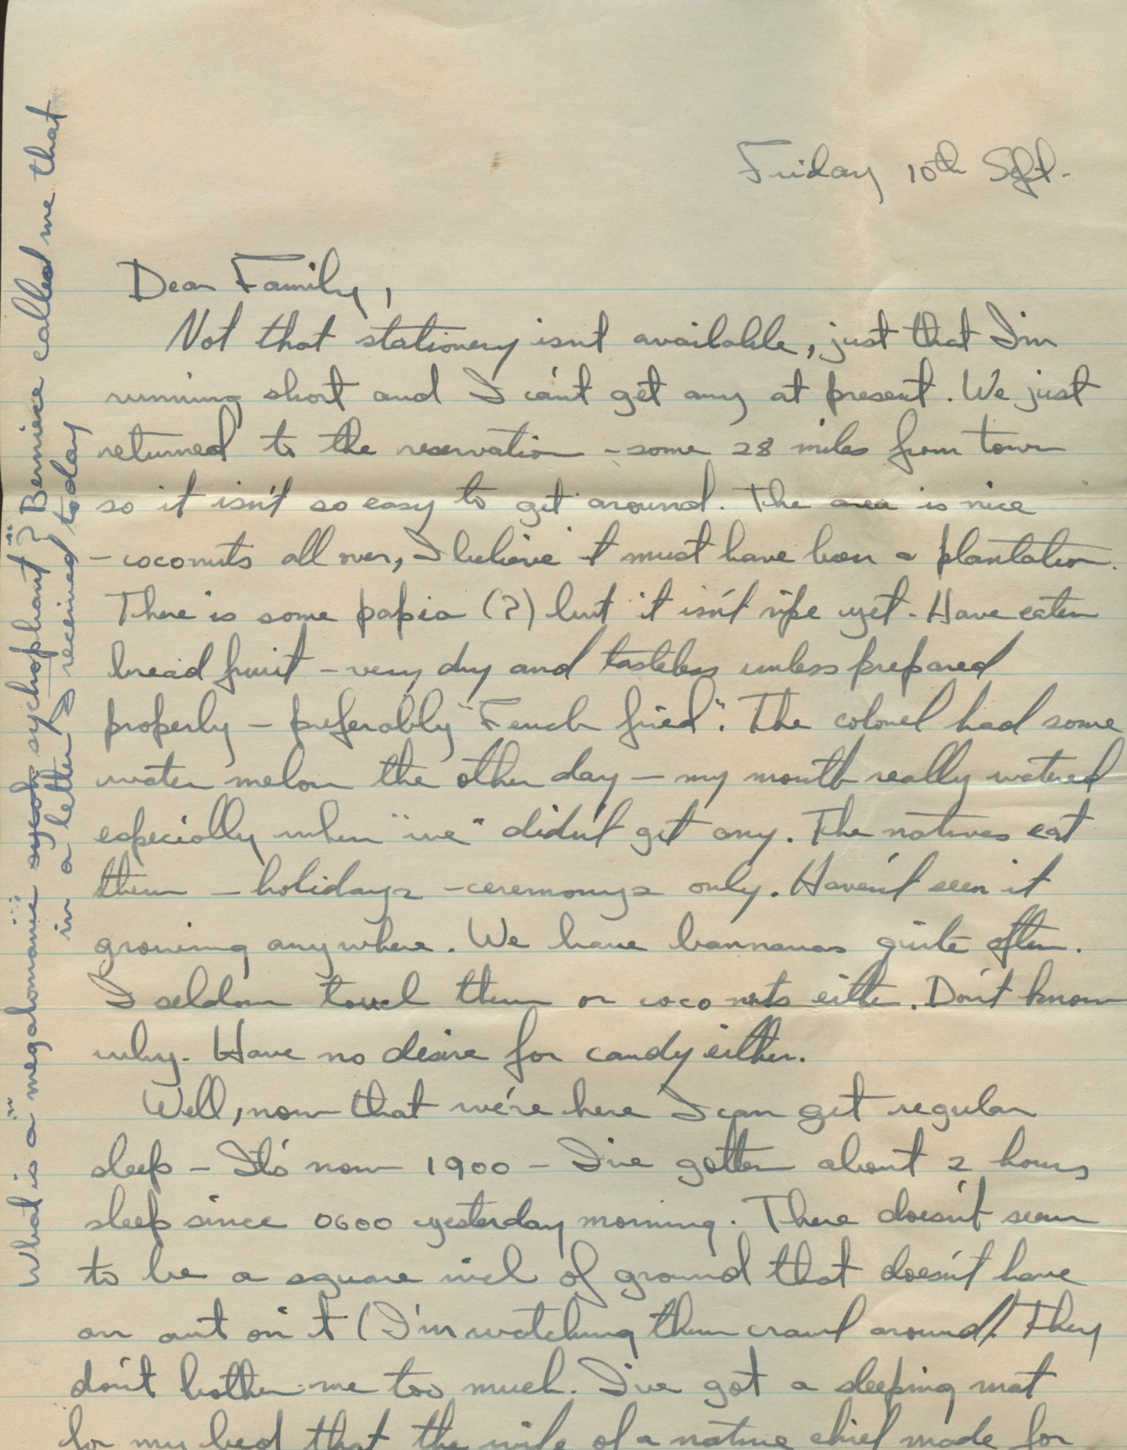 Friday 10th Sept.
Dear Family,
Not that stationery isn't available, just that I'm
running short and I can't get any at present. We just
returned to the reservation - some 28 miles from town
so it isn't so easy to get around. The area is nice
- coconuts all over, I believe it must have been a plantation.
There is some papia (?) but it isn't ripe yet. Have eaten
bread fruit - very dry and tasteless unless prepared
properly - preferably "Fench fried". The colonel had some
water melon the other day - my mouth really watered
especially when "we" didn't get any. The natives eat
them - holidays - ceremonys only. Haven't seen it
growing anywhere. We have bannanas quite often.
I seldom touch them or coco nuts either. Don't know
why. Have no desire for candy either.
Well, now that we're here I can get regular
sleep - It's now 1900 - I've gotten about 2 hours
sleep since 0600 yesterday morning. There doesn't seem
to be a square inch of ground that doesn't have
an ant on it (I'm watching them crawl around). They
don't bother me too much. I've got a sleeping mat
for my bed that the wife of a native chief made for
What is a "megalomanic sychophant"? Berniece called me that
in a letter I received today